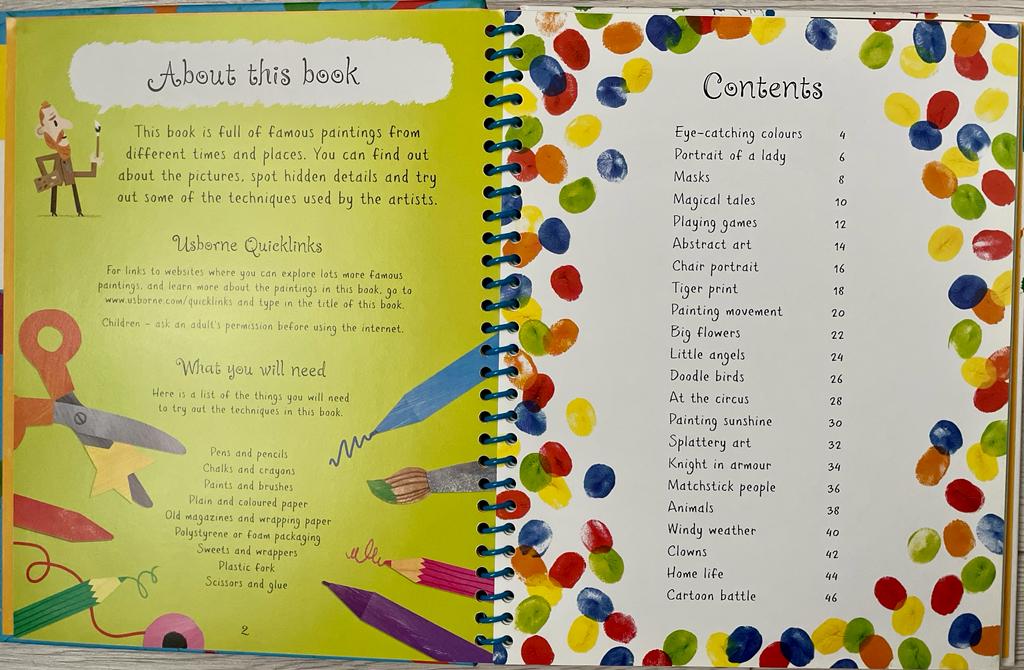 About this book
This book is full of famous paintings from
different times and places. You can find out
about the pictures, spot hidden details and try
out some of the techniques used by the artists.
Usborne Quicklinks
For links to websites where you can explore lots more famous
paintings, and learn more about the paintings in this book, go to
www.usborne.com/quicklinks and type in the title of this book.
Children – ask an adult's permission before using the internet.
What you will need
Here is a list of the things you will need
to try out the techniques in this book.
Pens and pencils
Chalks and crayons
Paints and brushes
Plain and coloured paper
Old magazines and wrapping paper
Polystyrene or foam packaging
Sweets and wrappers
Plastic fork
Scissors and glue
2
Contents
Eye-catching colours 4
Portrait of a lady 6
Masks 8
Magical tales 10
Playing games 12
Abstract art 14
Chair portrait 16
Tiger print 18
Painting movement 20
Big flowers 22
Little angels 24
Doodle birds 26
At the circus 28
Painting sunshine 30
Splattery art 32
Knight in armour 34
Matchstick people 36
Animals 38
Windy weather 40
Clowns 42
Home life 44
Cartoon battle 46